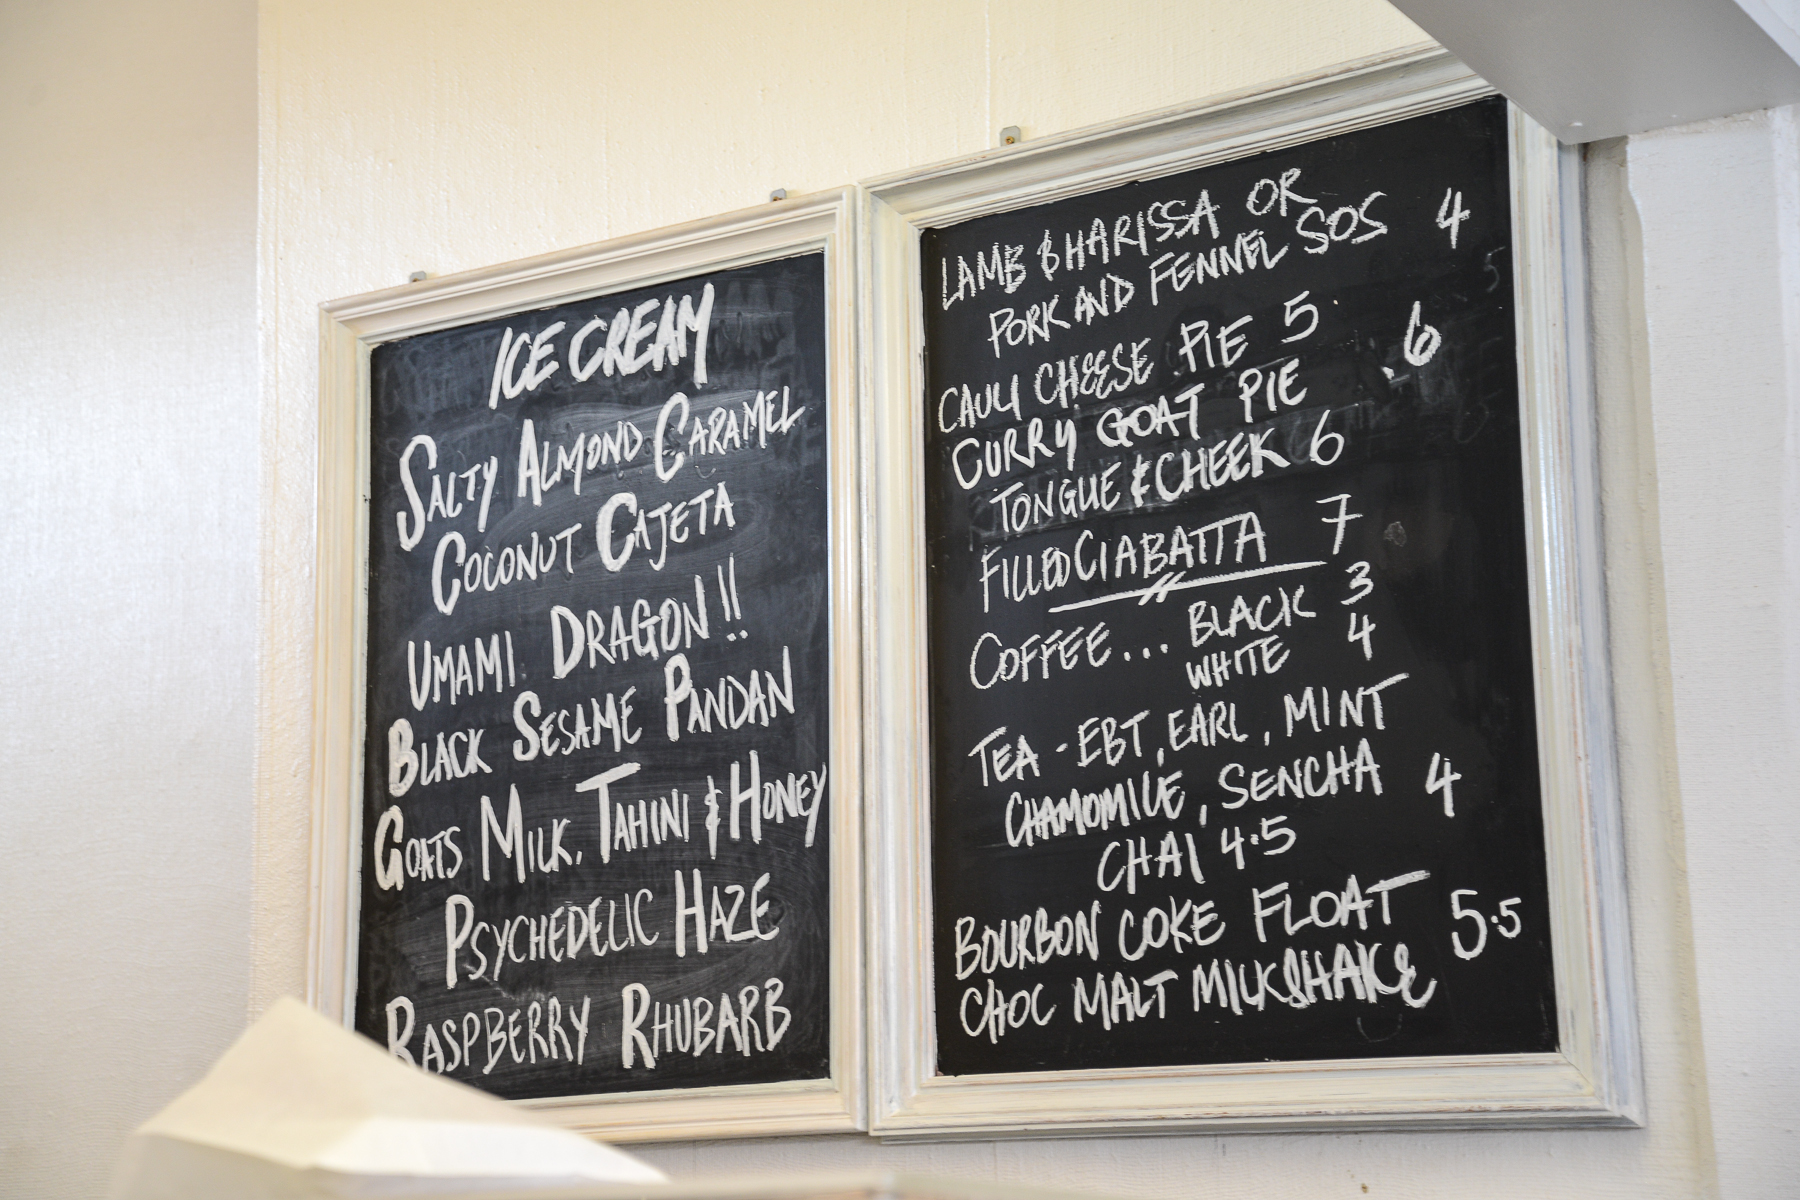 ICE CREAM
SALTY ALMOND CARAMEL
COCONUT CAJETA
UMAMI DRAGON!!
BLACK SESAME PANDAN
GOATS MILK, TAHINI & HONEY
PSYCHEDELIC HAZE
RASPBERRY RHUBARB
LAMB & HARISSA OR
PORK AND FENNEL SOS 4
CAULI CHEESE PIE 5
CURRY GOAT PIE .6
TONGUE & CHEEK 6
FILLED CIABATTA 7
COFFEE... BLACK 3
WHITE 4
TEA - EBT, EARL, MINT
CHAMOMILE, SENCHA 4
CHAI 4.5
BOURBON COKE FLOAT
CHOC MALT MILKSHAKE 5.5